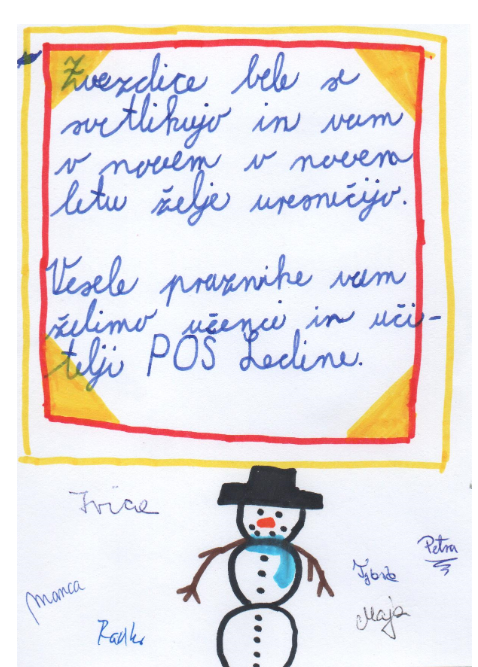 Zvezdice bele se
svetlikujo in vam
v novem v novem
letu želje uresničijo.
Vesele praznike vam
želimo učenci in uči-
telji POŠ Ledine.
Petra
Manca
Maja